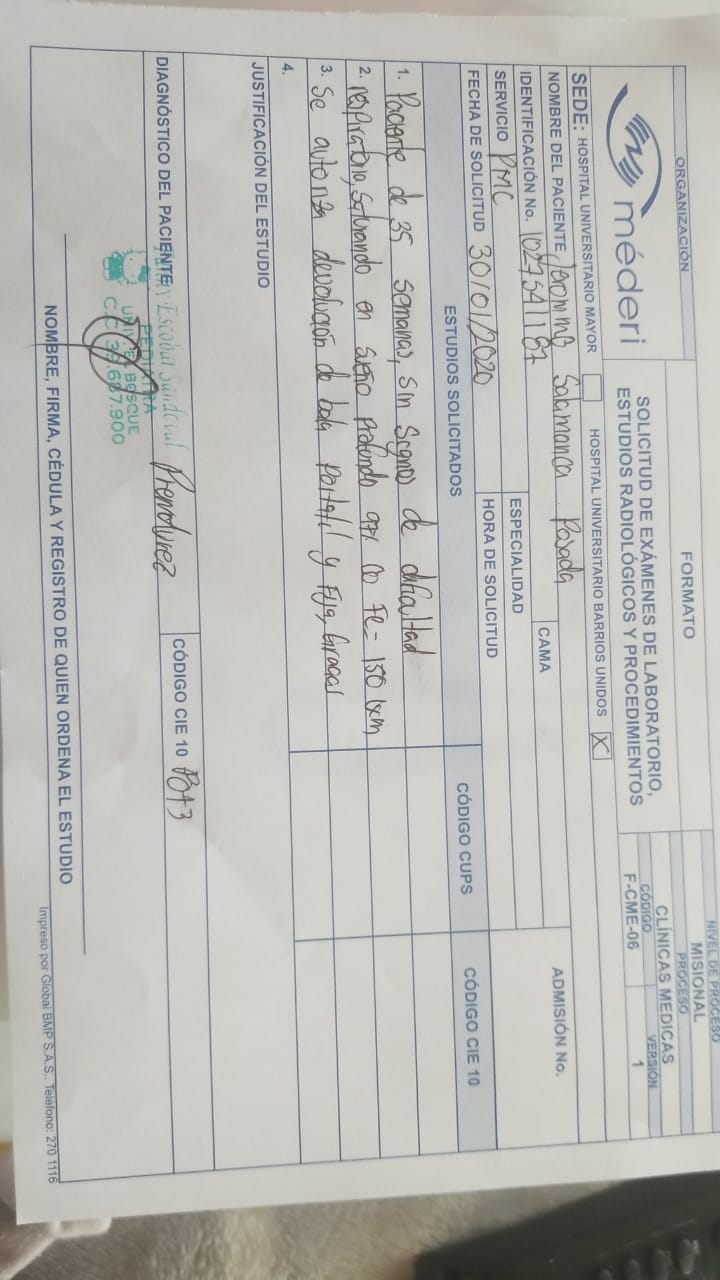 ORGANIZACIÓN
FORMATO
NIVEL DE PROCESO
MISIONAL
PROCESO
CLÍNICAS MEDICAS
méderi
SOLICITUD DE EXÁMENES DE LABORATORIO,
ESTUDIOS RADIOLÓGICOS Y PROCEDIMIENTOS
CÓDIGO
F-CME-06
VERSIÓN
1
SEDE: HOSPITAL UNIVERSITARIO MAYOR HOSPITAL UNIVERSITARIO BARRIOS UNIDOS X
NOMBRE DEL PACIENTE Jeronimo Salamanca Posada
CAMA
ADMISIÓN No.
IDENTIFICACIÓN No. 1027541187
ESPECIALIDAD
SERVICIO PMC
HORA DE SOLICITUD
FECHA DE SOLICITUD 30/01/2020
ESTUDIOS SOLICITADOS CÓDIGO CUPS CÓDIGO CIE 10
1. Paciente de 35 semanas, sin signos de dificultad
2. respiratoria, saturando en sueño profundo 97% con FC= 150 lxm
3. Se autoriza devolución de bala portatil y Fija, Gracias
4.
JUSTIFICACIÓN DEL ESTUDIO
DIAGNÓSTICO DEL PACIENTE Prematurez CÓDIGO CIE 10 P073
Escobar Sandoval
PEDIATRA
BOSQUE
C.C. 39.687.900
NOMBRE, FIRMA, CÉDULA Y REGISTRO DE QUIEN ORDENA EL ESTUDIO
Impreso por Global BMP S.A.S.. Teléfono: 270 1116